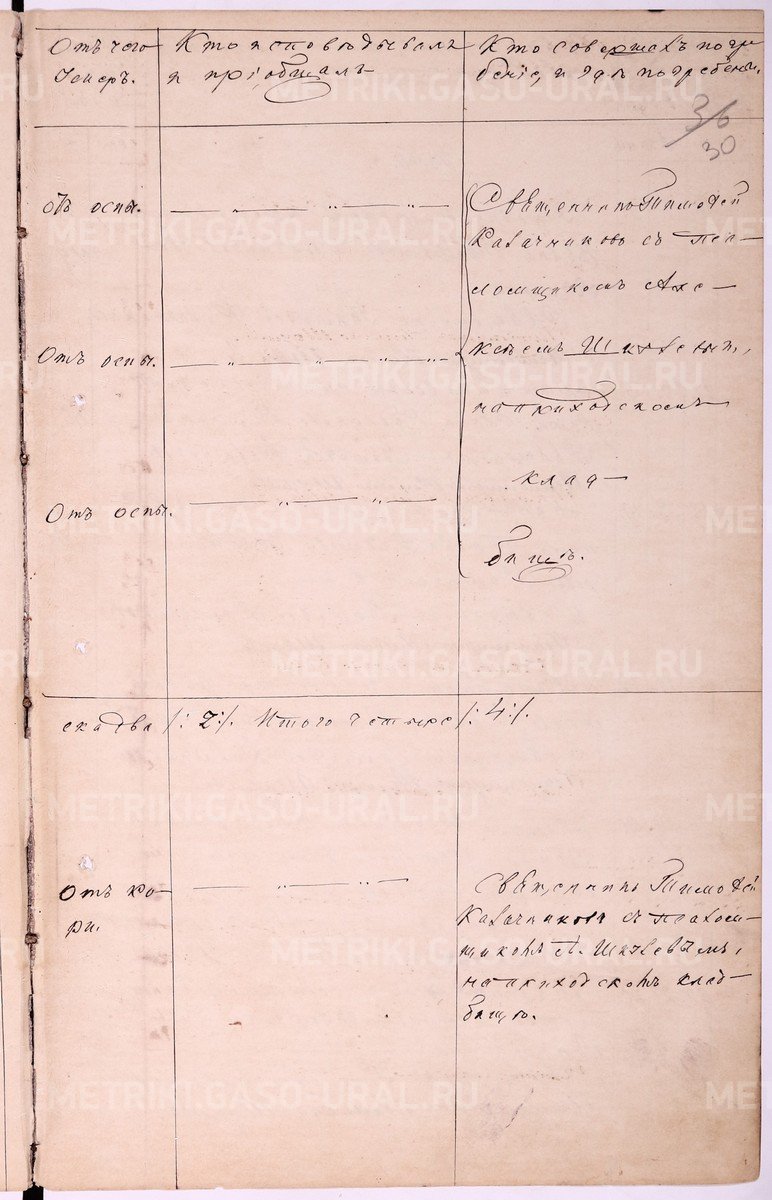 Отъ чего
умеръ.
Кто исповѣдывалъ
и пріобщалъ
Кто совершалъ погре-
беніе, и гдѣ погребены.
36
30
Отъ оспы.
Священникъ Тимофей
Казачниковъ съ пса-
ломщикомъ Але-
Отъ оспы.
ксѣемъ
на приходскомъ
Отъ оспы.
клад-
бищѣ.
ска два /: 2 :/. Итого четыре /: 4 :/.
Отъ ко-
ри.
Священникъ Тимофей
Казачниковъ съ псалом-
щикомъ А.
на приходскомъ клад-
бищѣ.
METRIKI.GASO-URAL.RU